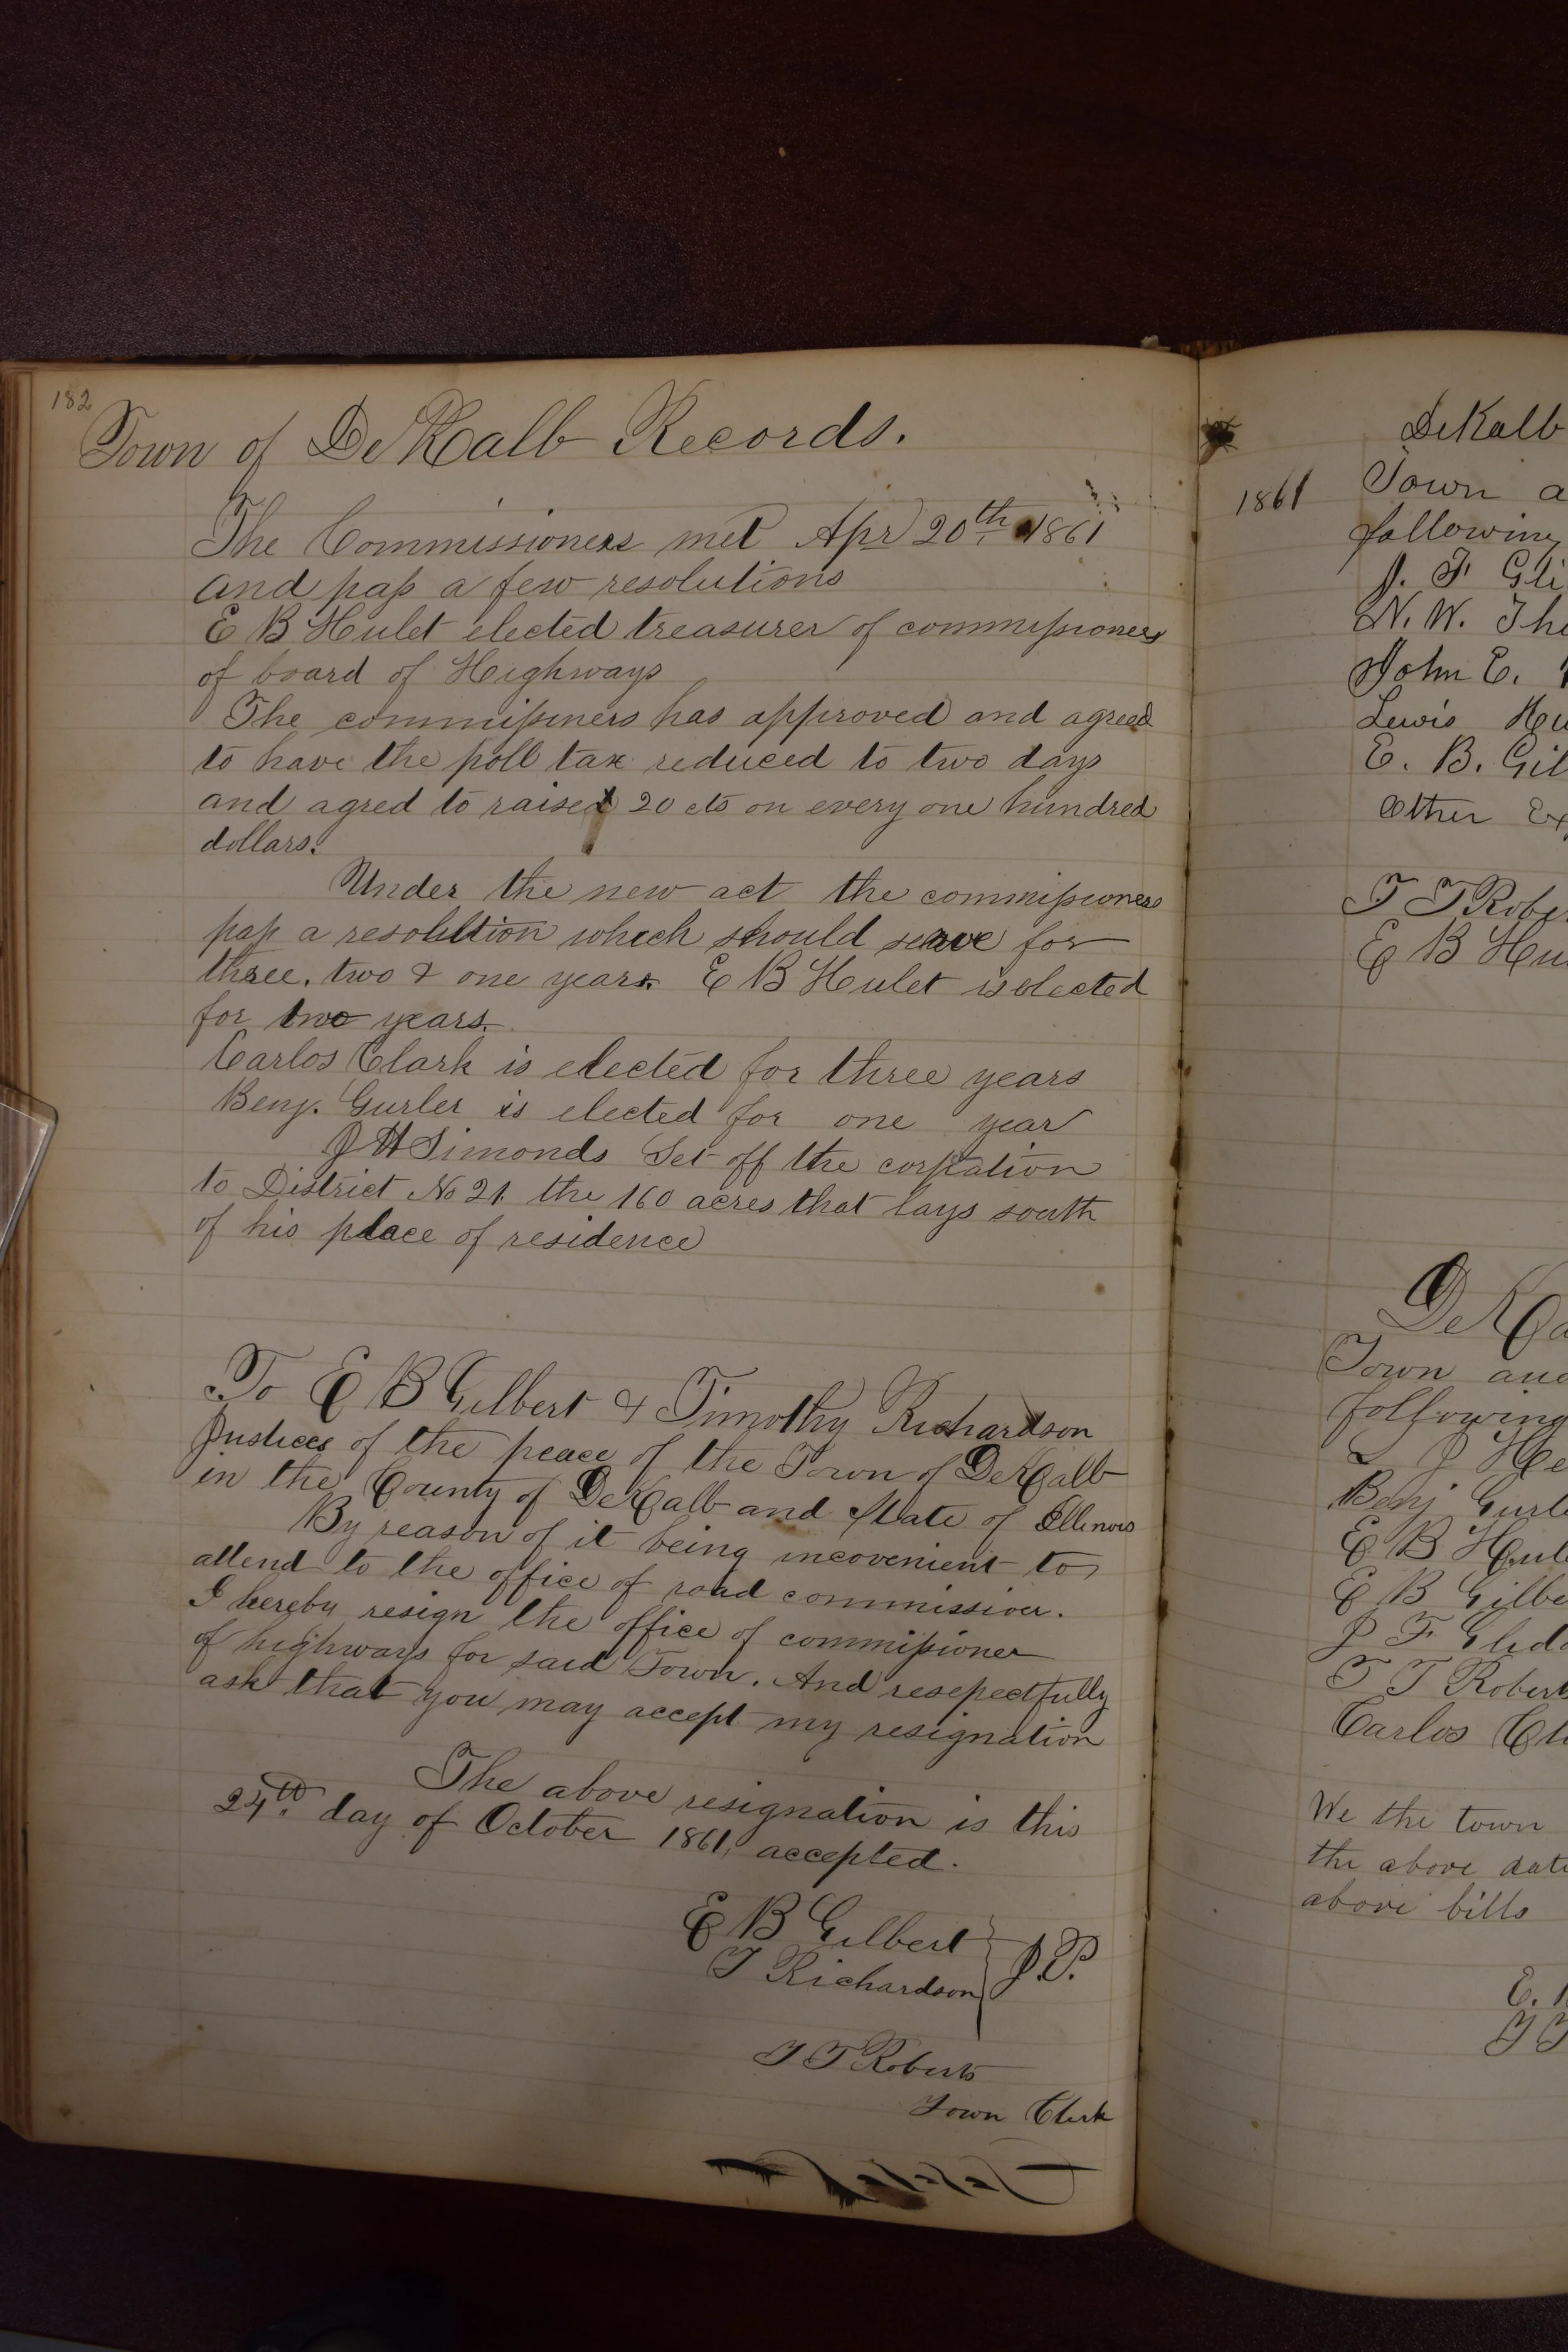 182
Town of DeKalb Records.
The Commissioners met Apr 20th 1861
and pass a few resolutions
E B Hulet elected treasurer of commissioners
of board of Highways
The commissiners has approved and agreed
to have the poll tax reduced to two days
and agred to raise 20 cts on every one hundred
dollars.
Under the new act the commissioners
pass a resolution which should serve for
three, two & one years. E B Hulet is elected
for two years.
Carlos Clark is elected for three years
Benj. Gurler is elected for one year
J H Simonds Set off the corpation
to District No 21. the 160 acres that lays south
of his place of residence
To E B Gilbert & Timothy Richardson
Justices of the peace of the Town of DeKalb
in the County of DeKalb and State of Illinois
By reason of it being incovenient to
attend to the office of road commissioner.
I hereby resign the office of commissioner
of highways for said Town. And resepectfully
ask that you may accept my resignation
The above resignation is this
24th day of October 1861, accepted.
E B Gilbert
T Richardson J.P.
T T Roberts
Town Clerk
DeKalb
1861 Town a
following
J. F. Gli
N. W. The
John E.
Lewis Hu
E. B. Gil
Other Ex
T T Rober
E B Hu
DeKa
Town and
following
L J He
Benj Gurle
E B Hule
E B Gilbe
J F Glidd
T T Robert
Carlos Cl
We the town
the above date
above bills
E.
T T